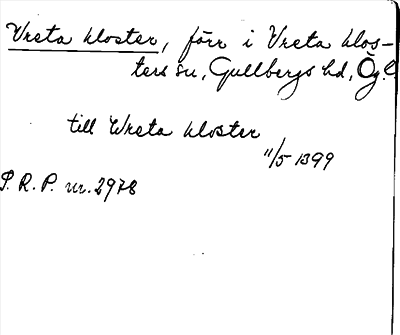 Vreta kloster, förr i Vreta klos-
ters sn, Gullbergs hd, Ög.l.
till Wreta kloster
11/5 1399
P. R. P. nr. 2978